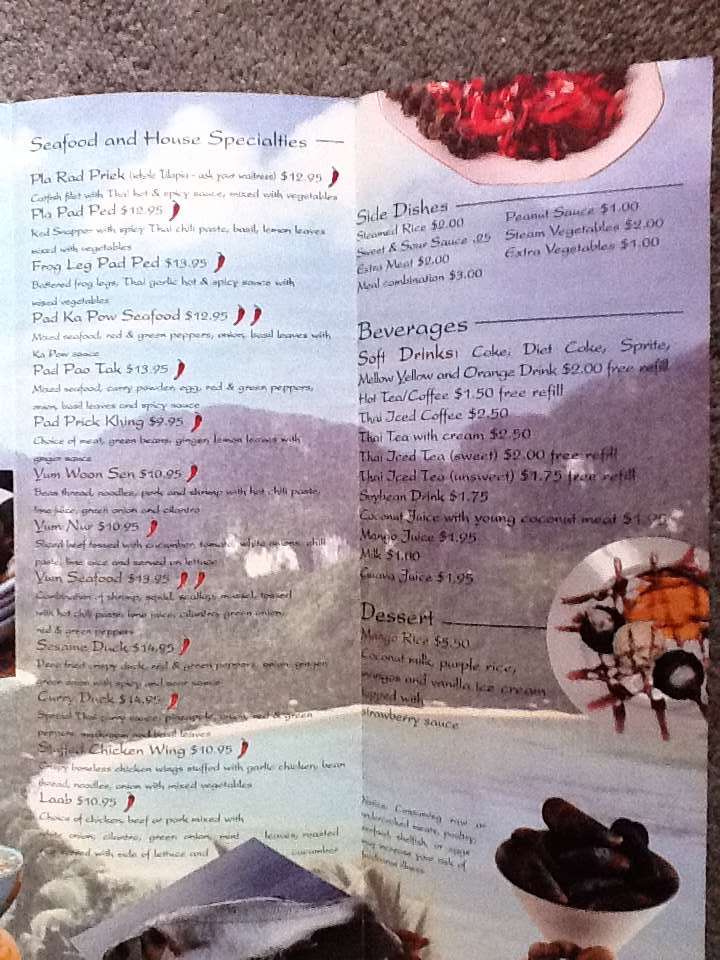 Seafood and House Specialties
Pla Rad Prick (whole Tilapia - ask your waitress) $12.95
Catfish filet with Thai hot & spicy sauce, mixed with vegetables
Pla Pad Ped $12.95
Red Snapper with spicy Thai chili paste, basil, lemon leaves
mixed with vegetables
Frog Leg Pad Ped $13.95
Battered frog legs, Thai garlic hot & spicy sauce with
mixed vegetables
Pad Ka Pow Seafood $12.95
Mixed seafood, red & green peppers, onion, basil leaves with
Ka Pow sauce
Pad Pao Tak $13.95
Mixed seafood, curry powder, egg, red & green peppers,
onion, basil leaves and spicy sauce
Pad Prick Khing $9.95
Choice of meat, green beans, ginger, lemon leaves with
ginger sauce
Yum Woon Sen $10.95
Bean thread, noodles, pork and shrimp with hot chili paste,
lime juice, green onion and cilantro
Yum Nur $10.95
Sliced beef tossed with cucumber, tomato, white onions, chili
paste, lime juice and served on lettuce
Yum Seafood $13.95
Combination of shrimp, squid, scallop, mussel, tossed
with hot chili paste, lime juice, cilantro, green onion,
red & green peppers
Sesame Duck $14.95
Deep fried crispy duck, red & green peppers, onion, ginger
green onion with spicy and sour sauce
Curry Duck $14.95
Special Thai curry sauce, pineapple, onion, red & green
peppers, mushroom and basil leaves
Stuffed Chicken Wing $10.95
Crispy boneless chicken wings stuffed with garlic chicken, bean
thread, noodles, onion with mixed vegetables
Laab $10.95
Choice of chicken, beef or pork mixed with
onion, cilantro, green onion, mint leaves, roasted
with side of lettuce and cucumber
Side Dishes
Steamed Rice $2.00
Sweet & Sour Sauce .25
Extra Meat $2.00
Meat combination $3.00
Peanut Sauce $1.00
Steam Vegetables $2.00
Extra Vegetables $1.00
Beverages
Soft Drinks: Coke, Diet Coke, Sprite,
Mellow Yellow and Orange Drink $2.00 free refill
Hot Tea/Coffee $1.50 free refill
Thai Iced Coffee $2.50
Thai Tea with cream $2.50
Thai Iced Tea (sweet) $2.00 free refill
Thai Iced Tea (unsweet) $1.75 free refill
Soybean Drink $1.75
Coconut Juice with young coconut meat $1.95
Mango Juice $1.95
Milk $1.00
Guava Juice $1.95
Dessert
Mango Rice $5.50
Coconut milk, purple rice,
mangos and vanilla ice cream
topped with
strawberry sauce
Notice: Consuming raw or
undercooked meats, poultry,
seafood, shellfish, or eggs
may increase your risk of
foodborne illness